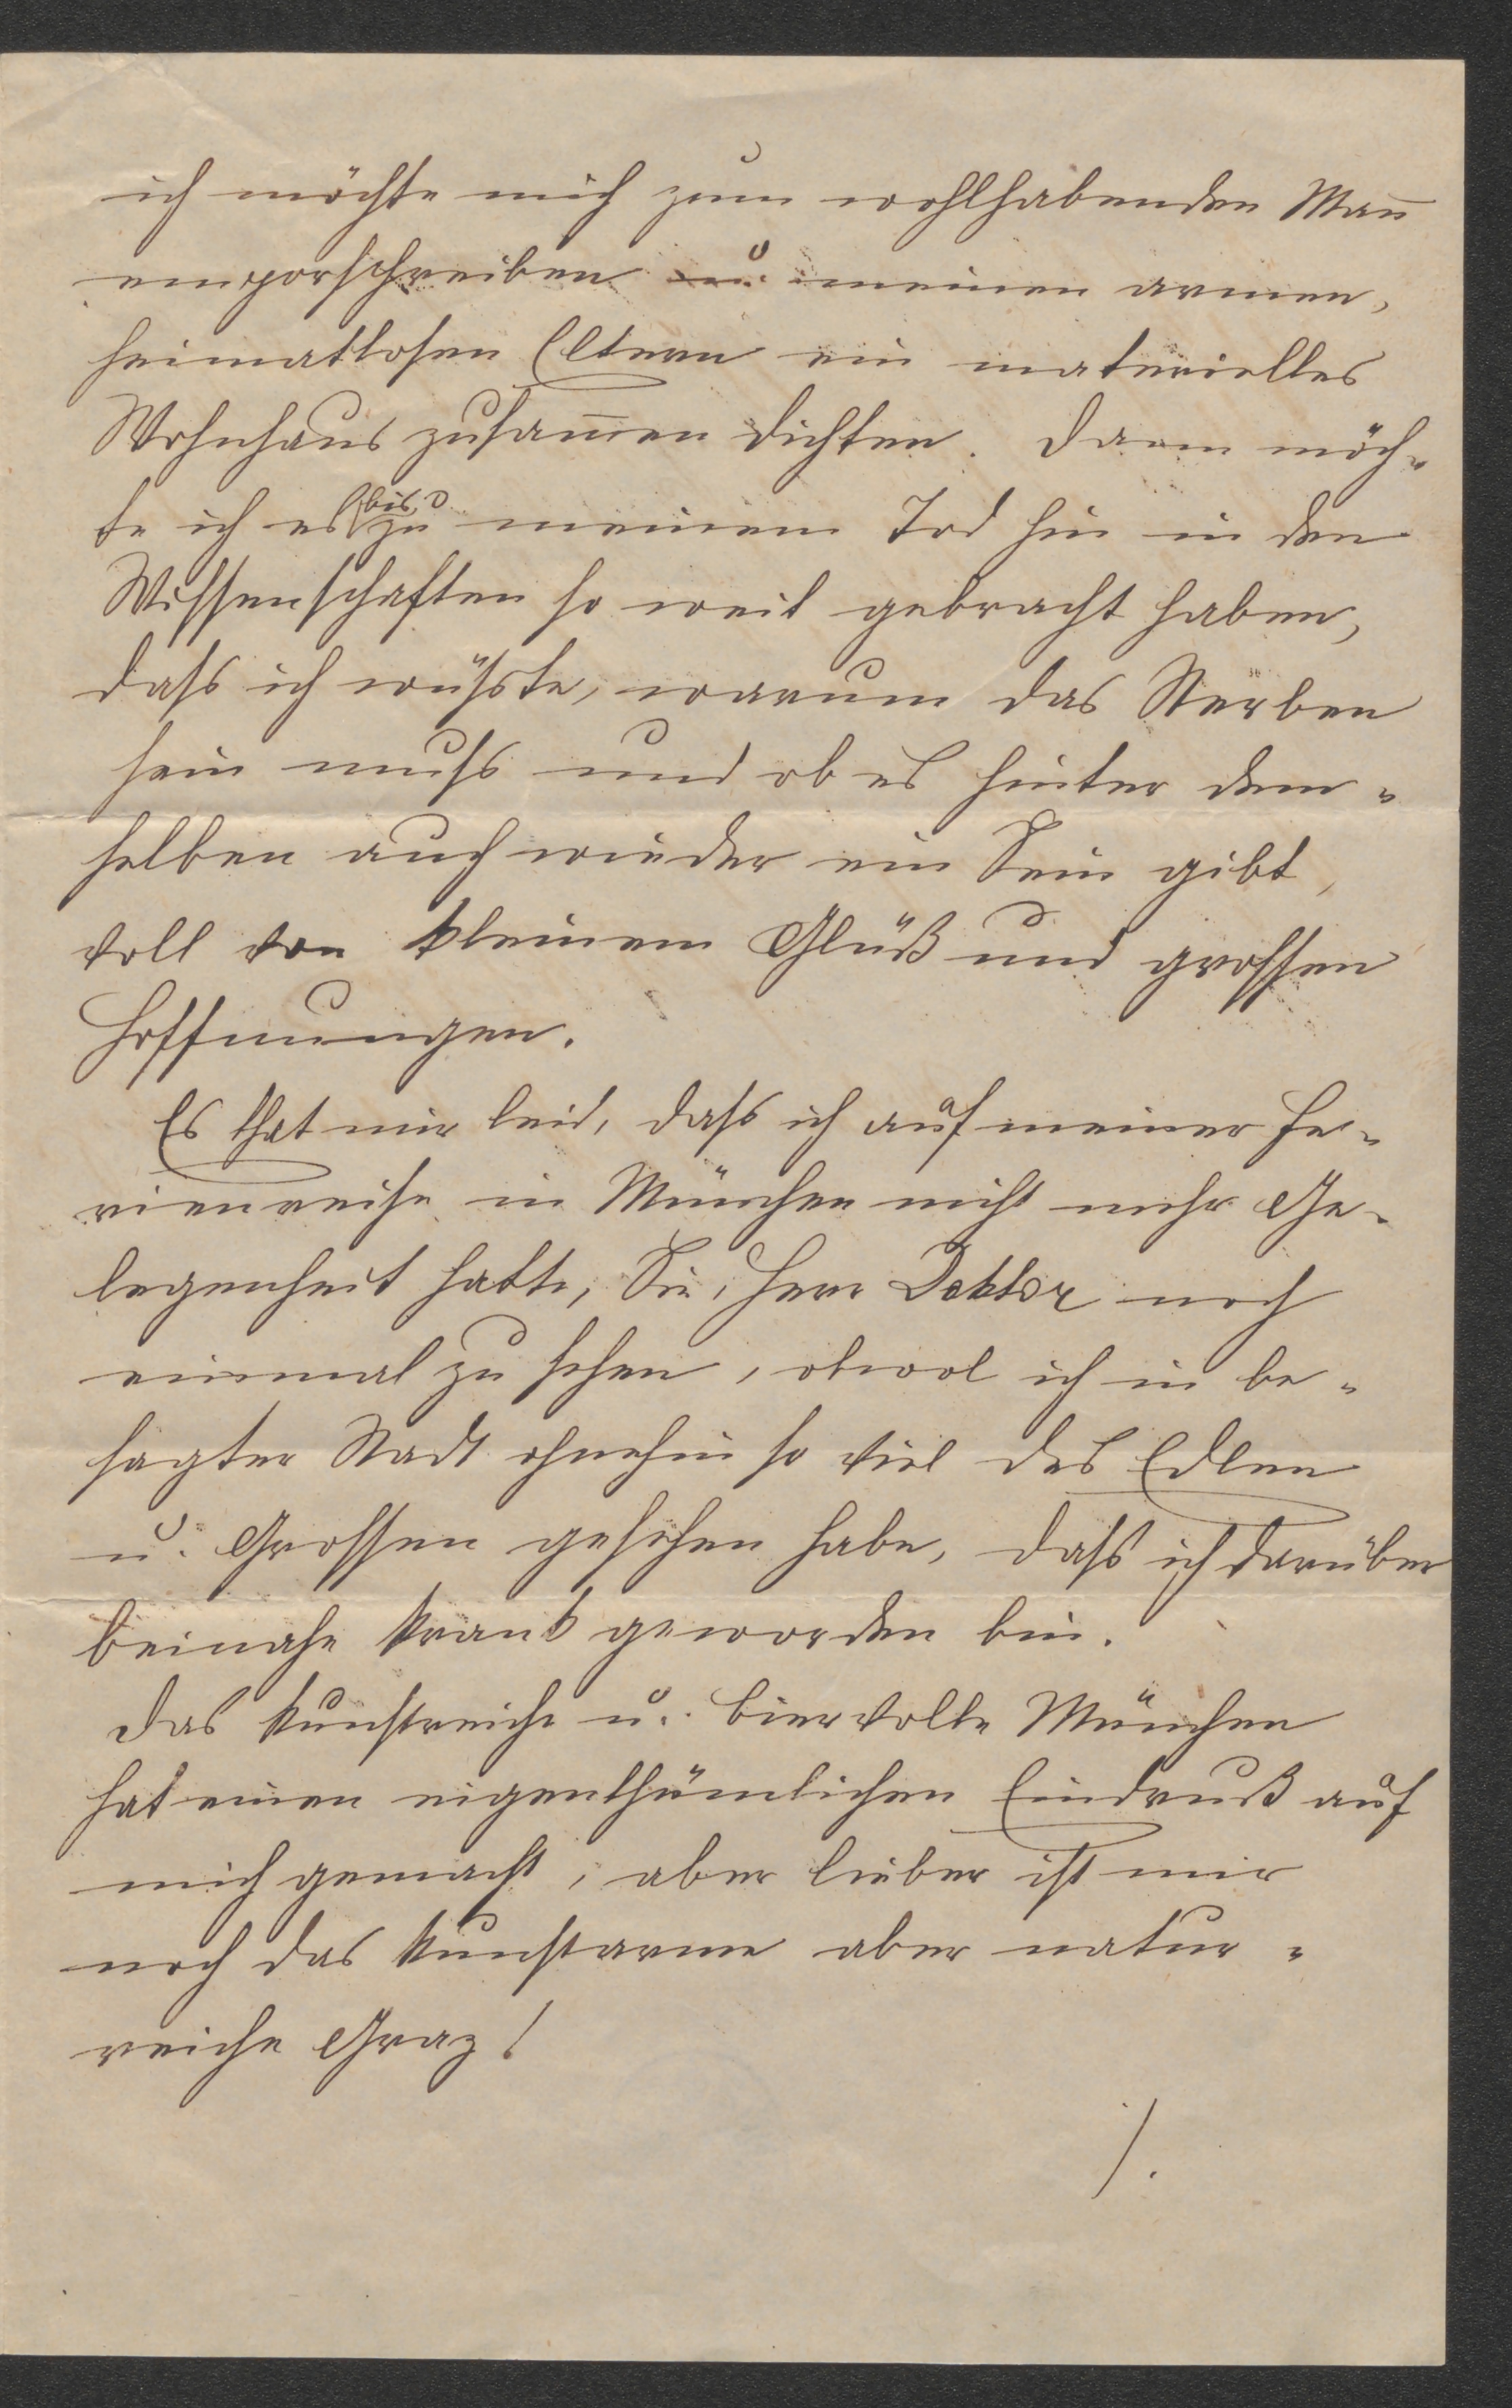 ich möchte mich zum wohlhabenden Man̄
emporschreiben u. meinen armen,
heimatlosen Eltern ein materielles
Wohnhaus zusam̄en dichten. Dann möch-
te ich es bis zu meinem Tod hin in den
Wissenschaften so weit gebracht haben,
dass ich wüsste, warum das Sterben
sein muss und ob es hinter dem-
selben auch wieder ein Sein gibt,
voll von kleinem Glück und grossen
Hoffnungen.
Es that mir leid, dass ich auf meiner Fe-
rienreise in München nicht mehr Ge-
legenheit hatte, Sie, Herr Doktor noch
einmal zu sehen, obwol ich in be-
sagter Stadt ohnehin so viel des Edlen
u. Grossen gesehen habe, dass ich darüber
beinahe krank geworden bin.
Das kunstreiche u. biervolle München
hat einen eigenthümlichen Eindruck auf
mich gemacht, aber lieber ist mir
noch das kunstarme aber natur-
reiche Graz!
./.